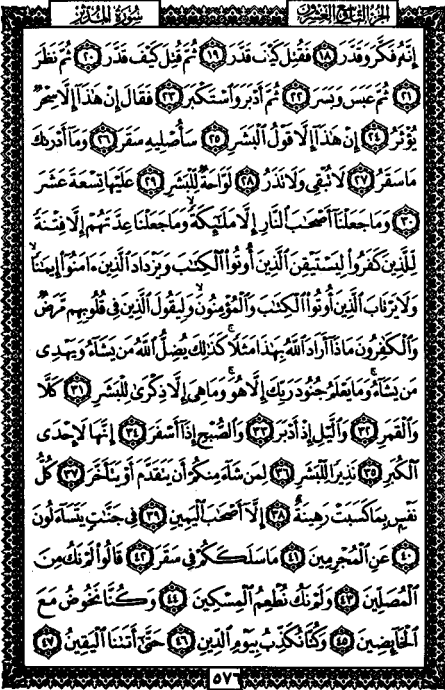 سُورَةُ المُدَّثِّرِ الجُزءُ التَّاسِعُ وَالعِشْرُونَ
إِنَّهُۥ فَكَّرَ وَقَدَّرَ ١٨ فَقُتِلَ كَيْفَ قَدَّرَ ١٩ ثُمَّ قُتِلَ كَيْفَ قَدَّرَ ٢٠ ثُمَّ نَظَرَ
٢١ ثُمَّ عَبَسَ وَبَسَرَ ٢٢ ثُمَّ أَدْبَرَ وَٱسْتَكْبَرَ ٢٣ فَقَالَ إِنْ هَٰذَآ إِلَّا سِحْرٌ
يُؤْثَرُ ٢٤ إِنْ هَٰذَآ إِلَّا قَوْلُ ٱلْبَشَرِ ٢٥ سَأُصْلِيهِ سَقَرَ ٢٦ وَمَآ أَدْرَىٰكَ
مَا سَقَرُ ٢٧ لَا تُبْقِى وَلَا تَذَرُ ٢٨ لَوَّاحَةٌ لِّلْبَشَرِ ٢٩ عَلَيْهَا تِسْعَةَ عَشَرَ
٣٠ وَمَا جَعَلْنَآ أَصْحَٰبَ ٱلنَّارِ إِلَّا مَلَٰٓئِكَةً ۙ وَمَا جَعَلْنَا عِدَّتَهُمْ إِلَّا فِتْنَةً
لِّلَّذِينَ كَفَرُوا۟ لِيَسْتَيْقِنَ ٱلَّذِينَ أُوتُوا۟ ٱلْكِتَٰبَ وَيَزْدَادَ ٱلَّذِينَ ءَامَنُوٓا۟ إِيمَٰنًا ۙ
وَلَا يَرْتَابَ ٱلَّذِينَ أُوتُوا۟ ٱلْكِتَٰبَ وَٱلْمُؤْمِنُونَ ۙ وَلِيَقُولَ ٱلَّذِينَ فِى قُلُوبِهِم مَّرَضٌ
وَٱلْكَٰفِرُونَ مَاذَآ أَرَادَ ٱللَّهُ بِهَٰذَا مَثَلًا ۚ كَذَٰلِكَ يُضِلُّ ٱللَّهُ مَن يَشَآءُ وَيَهْدِى
مَن يَشَآءُ ۚ وَمَا يَعْلَمُ جُنُودَ رَبِّكَ إِلَّا هُوَ ۚ وَمَا هِىَ إِلَّا ذِكْرَىٰ لِلْبَشَرِ ٣١ كَلَّا
وَٱلْقَمَرِ ٣٢ وَٱلَّيْلِ إِذْ أَدْبَرَ ٣٣ وَٱلصُّبْحِ إِذَآ أَسْفَرَ ٣٤ إِنَّهَا لَإِحْدَى
ٱلْكُبَرِ ٣٥ نَذِيرًا لِّلْبَشَرِ ٣٦ لِمَن شَآءَ مِنكُمْ أَن يَتَقَدَّمَ أَوْ يَتَأَخَّرَ ٣٧ كُلُّ
نَفْسٍۭ بِمَا كَسَبَتْ رَهِينَةٌ ٣٨ إِلَّآ أَصْحَٰبَ ٱلْيَمِينِ ٣٩ فِى جَنَّٰتٍ يَتَسَآءَلُونَ
٤٠ عَنِ ٱلْمُجْرِمِينَ ٤١ مَا سَلَكَكُمْ فِى سَقَرَ ٤٢ قَالُوا۟ لَمْ نَكُ مِنَ
ٱلْمُصَلِّينَ ٤٣ وَلَمْ نَكُ نُطْعِمُ ٱلْمِسْكِينَ ٤٤ وَكُنَّا نَخُوضُ مَعَ
ٱلْخَآئِضِينَ ٤٥ وَكُنَّا نُكَذِّبُ بِيَوْمِ ٱلدِّينِ ٤٦ حَتَّىٰٓ أَتَىٰنَا ٱلْيَقِينُ ٤٧
٥٧٦